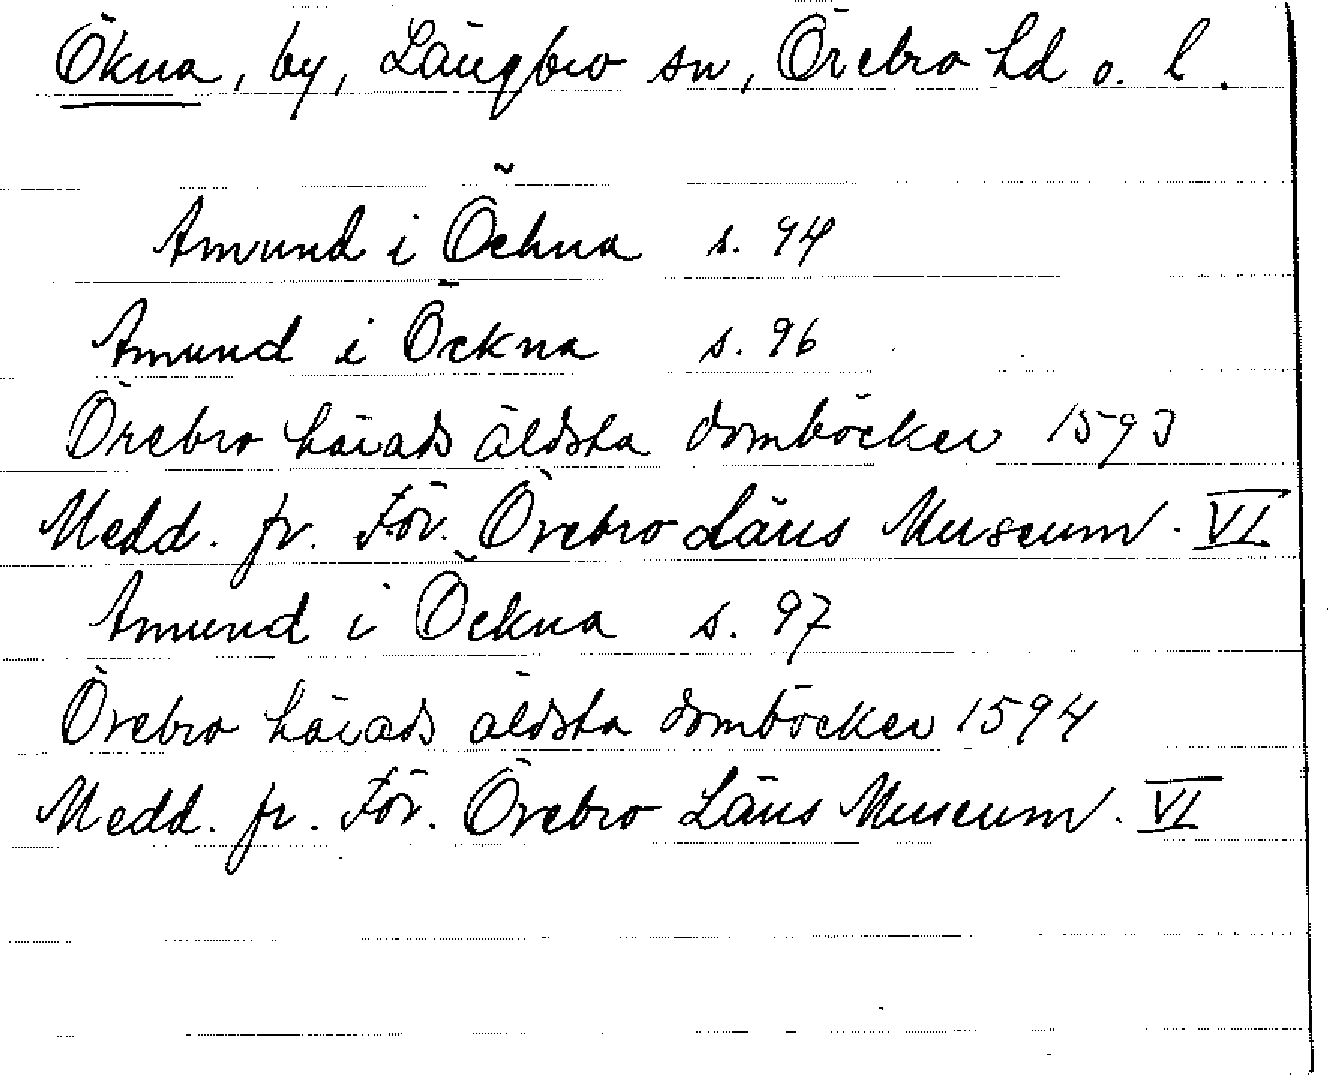 Ökna, by, Längbro sn, Örebro hd o. l.
Amund i Öchna s. 94
Amund i Öckna s. 96
Örebro härads äldsta domböcker 1593
Medd. fr. För. Örebro Läns Museum. VI
Amund i Öckna s. 97
Örebro härads äldsta domböcker 1594
Medd. fr. För. Örebro Läns Museum. VI